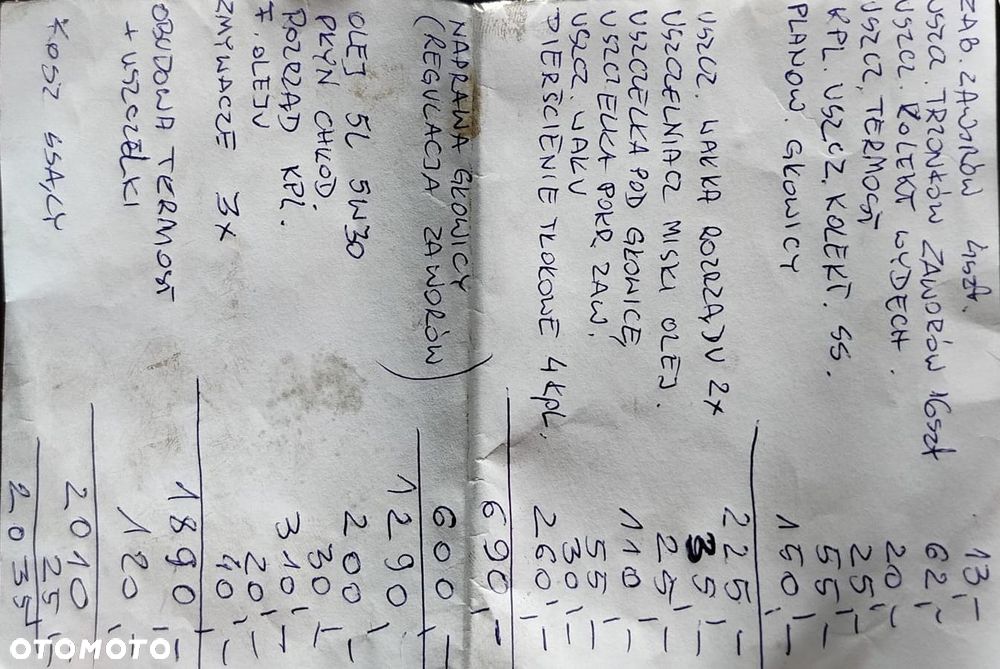 ZAB. ZAWORÓW 4szt. 13,-
USZCZ. TRZONKÓW ZAWORÓW 16szt 62,-
USZCZ. KOLEKT WYDECH. 20,-
USZCZ, TERMOST 25,-
KPL. USZCZ. KOLEKT. SS. 55,-
PLANOW. GŁOWICY 150,-
225,-
USZCZ. WAŁKA ROZRZĄDU 2x 35,-
USZCZELNIACZ MISKI OLEJ. 25,-
USZCZELKA POD GŁOWICĘ 110,-
USZCZELKA POKR. ZAW. 55,-
USZCZ. WAŁU 30,-
PIERŚCIENIE TŁOKOWE 4 kpl. 260,-
690,-
NAPRAWA GŁOWICY 600,-
(REGULACJA ZAWORÓW)
1290,-
OLEJ 5L 5W30 200,-
PŁYN CHŁOD. 30,-
ROZRZĄD KPL. 310,-
F. OLEJU 20,-
ZMYWACZE 3x 40,-
1890,-
OBUDOWA TERMOST 120,-
+ USZCZELKI
2010,-
KOSZ SSĄCY 25,-
2035,-
OTOMOTO